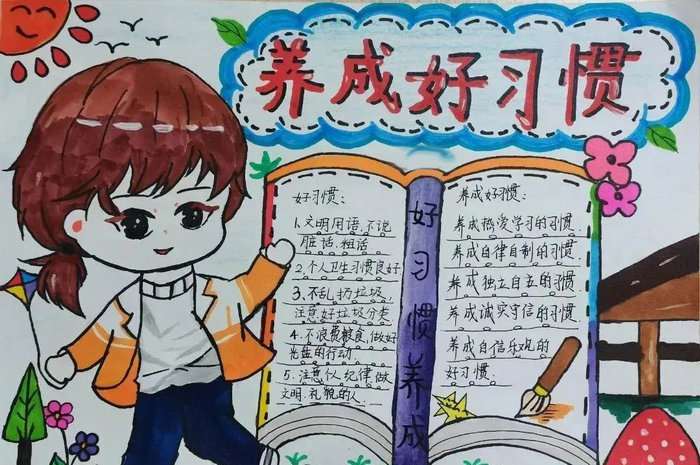 养成好习惯
好习惯：
1.文明用语，不说
脏话，粗话
2.个人卫生习惯良好
3.不乱扔垃圾，
注意好垃圾分类
4.不浪费粮食，做好
光盘的行动
5.注意仪纪律，做
文明.礼貌的人.
好习惯养成
养成好习惯：
养成热爱学习的习惯
养成自律自制的习惯.
养成独立自立的习惯
养成诚实守信的习惯
养成自信乐观的
好习惯.